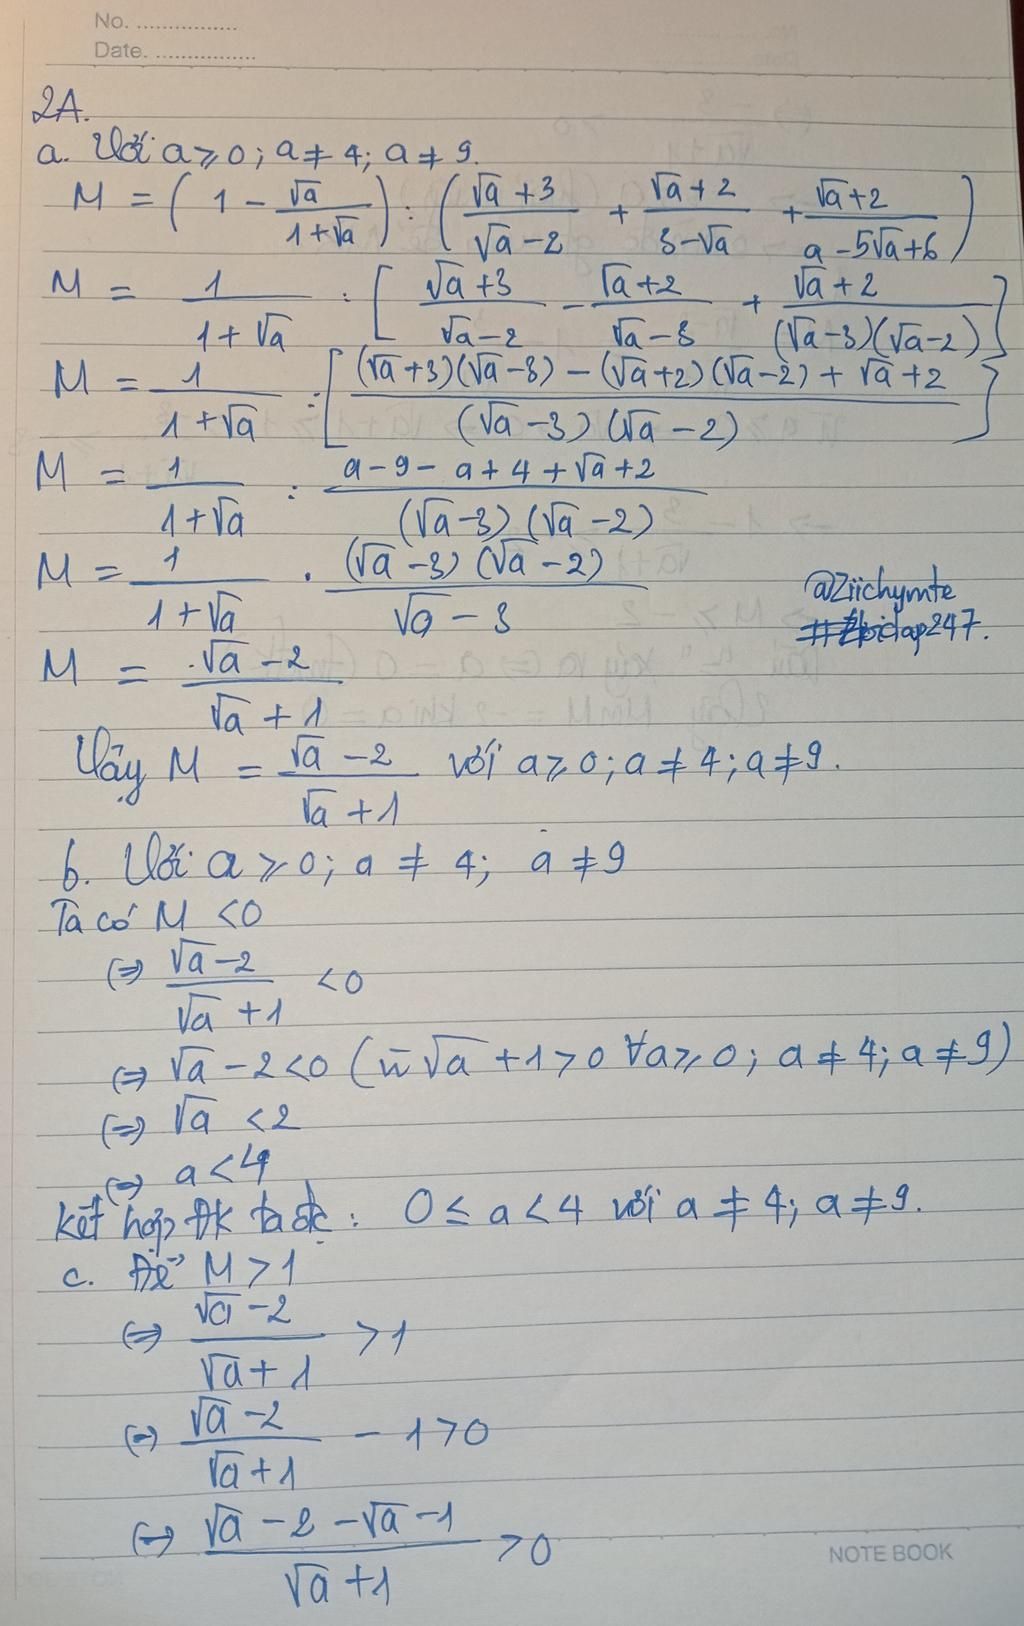 No. ................
Date. ................
2A.
a. Với a ≥ 0; a ≠ 4; a ≠ 9.
M = (1 - √a/(1+√a)) : ((√a+3)/(√a-2) + (√a+2)/(3-√a) + (√a+2)/(a-5√a+6))
M = 1/(1+√a) : [(√a+3)/(√a-2) - (√a+2)/(√a-3) + (√a+2)/((√a-3)(√a-2))]
M = 1/(1+√a) : [((√a+3)(√a-3) - (√a+2)(√a-2) + √a+2)/((√a-3)(√a-2))]
M = 1/(1+√a) : (a-9-a+4+√a+2)/((√a-3)(√a-2))
M = 1/(1+√a) . ((√a-3)(√a-2))/(√a-3)
@Ziichymte
M = (√a-2)/(√a+1)
Vậy M = (√a-2)/(√a+1) với a ≥ 0; a ≠ 4; a ≠ 9.
b. Với a ≥ 0; a ≠ 4; a ≠ 9
Ta có M < 0
(=) (√a-2)/(√a+1) < 0
(=) √a - 2 < 0 (vì √a + 1 > 0 ∀a ≥ 0; a ≠ 4; a ≠ 9)
(=) √a < 2
(=) a < 4
Kết hợp ĐK ta đc: 0 ≤ a < 4 với a ≠ 4; a ≠ 9.
c. Để M > 1
(=) (√a-2)/(√a+1) > 1
(=) (√a-2)/(√a+1) - 1 > 0
(=) (√a-2-√a-1)/(√a+1) > 0
NOTE BOOK